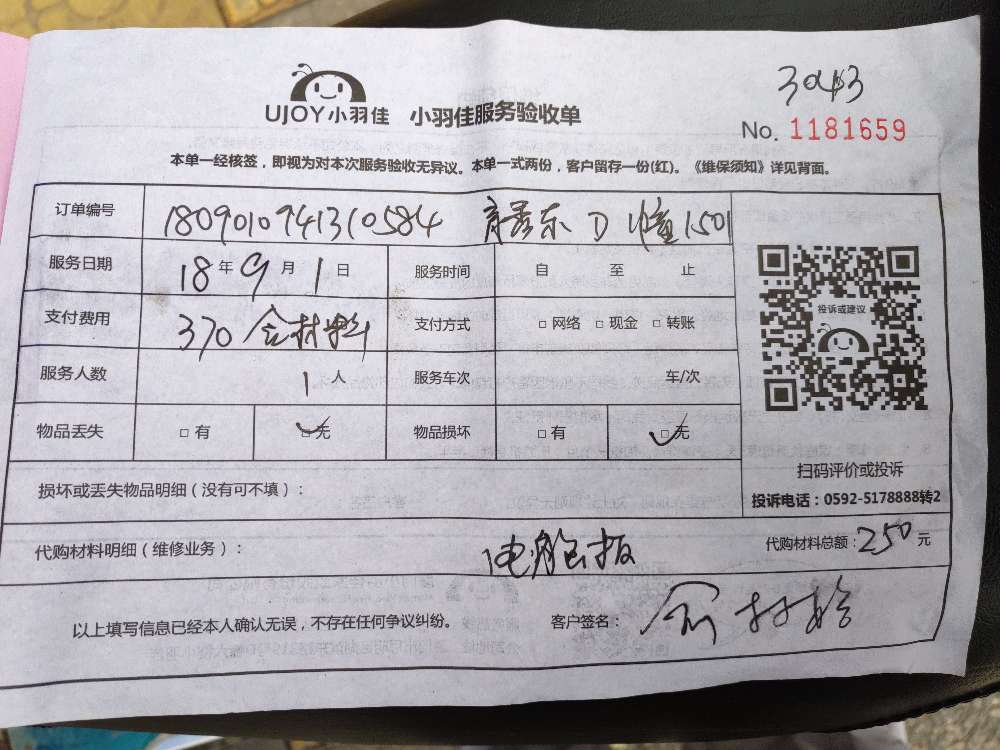 3043
UJOY小羽佳 小羽佳服务验收单
No. 1181659
本单一经核签，即视为对本次服务验收无异议。本单一式两份，客户留存一份(红)。《维保须知》详见背面。
订单编号 1809010941310584 D幢1501
服务日期 18年9月1日 服务时间 自 至 止
支付费用 370含材料 支付方式 □网络 □现金 □转账
服务人数 1人 服务车次 车/次
物品丢失 □有 □无 物品损坏 □有 □无
投诉或建议
扫码评价或投诉
投诉电话：0592-5178888转2
损坏或丢失物品明细（没有可不填）：
代购材料明细（维修业务）： 电脑板 代购材料总额：250元
以上填写信息已经本人确认无误，不存在任何争议纠纷。 客户签名：